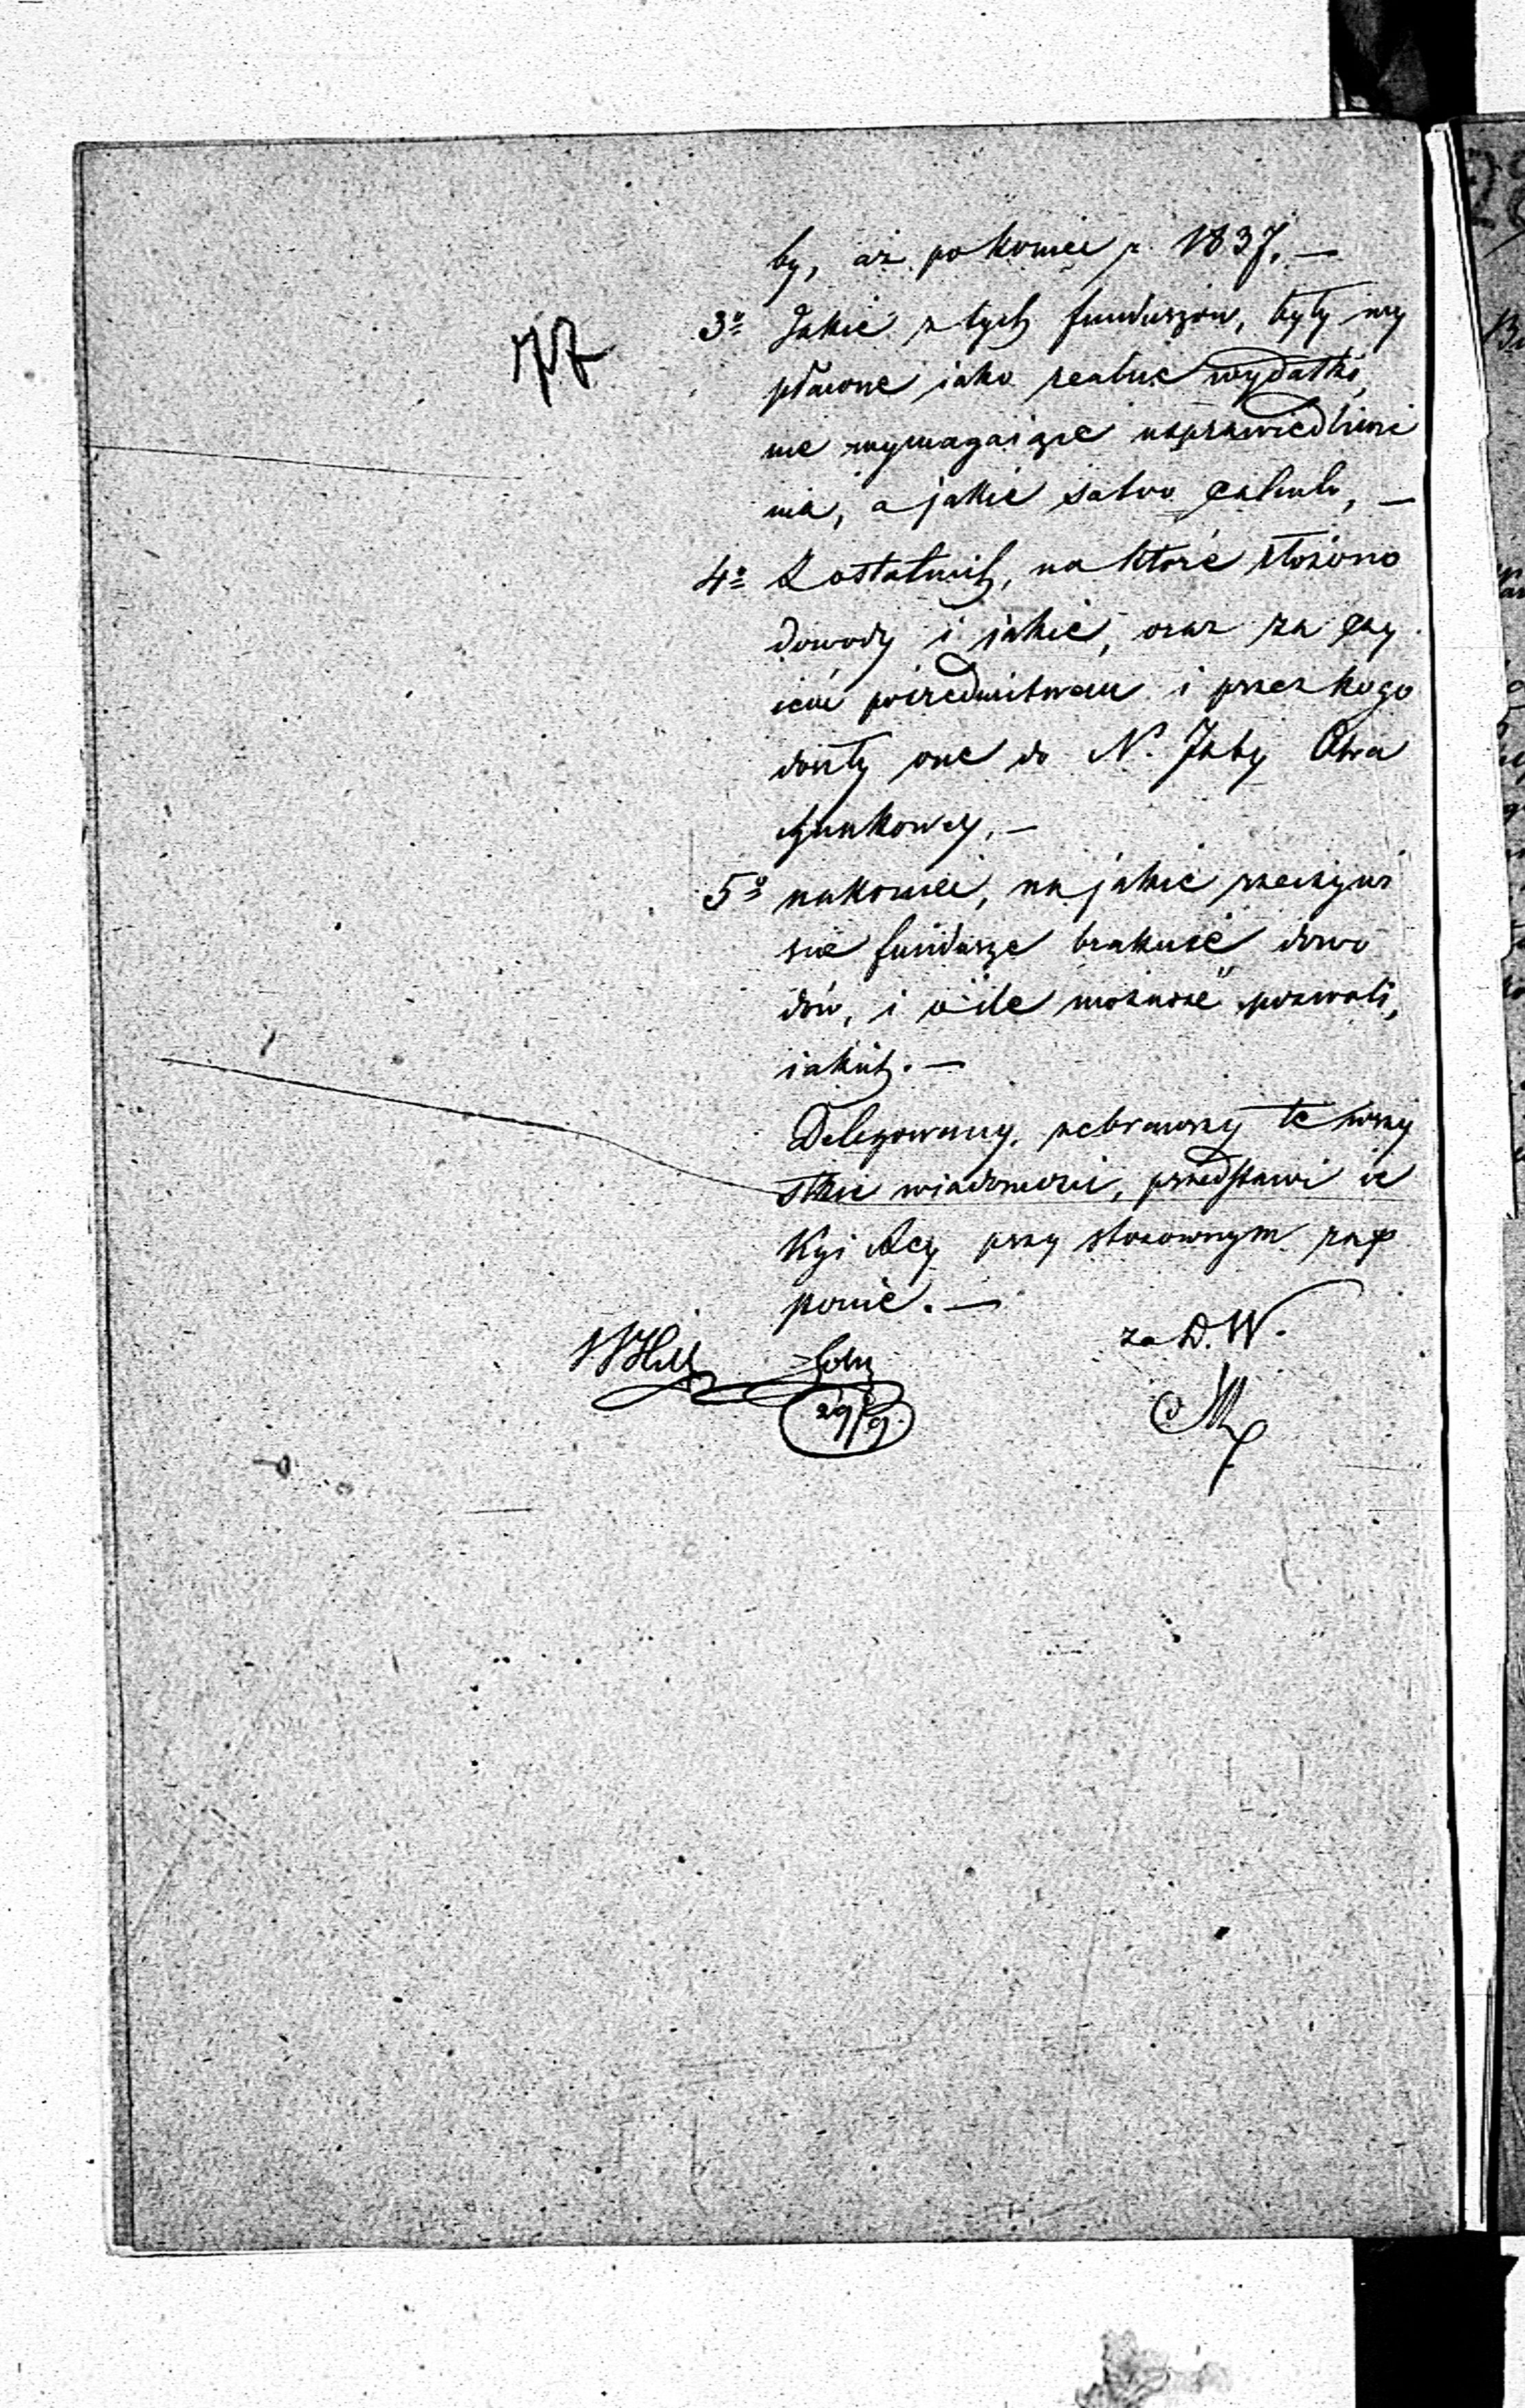 by, aż po koniec r. 1837. —
77
3o Jakie z tych funduszów, były wy
płacone iako realne wydatki,
nie wymagaiące usprawiedliwie
nia, a jakie salvo calculo, —
4o Z ostatnich, na które złożono
dowody i jakie, oraz za czy
iém pośrednictwem i przez kogo
doszły one do N. Izby Obra
chunkowey. —
5o nakoniec, na jakie
fundusze brakuie dowo
dów, i o ile możność pozwoli,
iakich. —
Delegowany, zebrawszy te wszy
stkie wiadomości, przedstawi ie
przy stosownym rap
porcie. —
za D. W.
29/9